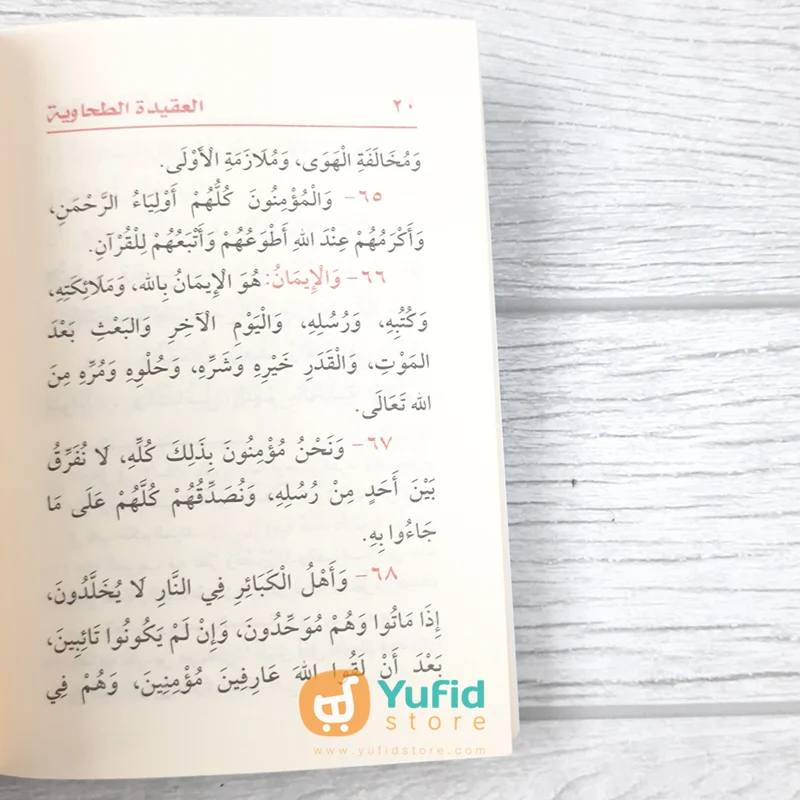 ٢٠ العقيدة الطحاوية
وَمُخَالَفَةِ الْهَوَى، وَمُلَازَمَةِ الْأَوْلَى.
٦٥- وَالْمُؤْمِنُونَ كُلُّهُمْ أَوْلِيَاءُ الرَّحْمَنِ،
وَأَكْرَمُهُمْ عِنْدَ اللهِ أَطْوَعُهُمْ وَأَتْبَعُهُمْ لِلْقُرْآنِ.
٦٦- وَالْإِيمَانُ: هُوَ الْإِيمَانُ بِاللهِ، وَمَلَائِكَتِهِ،
وَكُتُبِهِ، وَرُسُلِهِ، وَالْيَوْمِ الْآخِرِ وَالبَعْثِ بَعْدَ
المَوْتِ، وَالْقَدَرِ خَيْرِهِ وَشَرِّهِ، وَحُلْوِهِ وَمُرِّهِ مِنَ
الله تَعَالَى.
٦٧- وَنَحْنُ مُؤْمِنُونَ بِذَلِكَ كُلِّهِ، لَا نُفَرِّقُ
بَيْنَ أَحَدٍ مِنْ رُسُلِهِ، وَنُصَدِّقُهُمْ كُلَّهُمْ عَلَى مَا
جَاءُوا بِهِ.
٦٨- وَأَهْلُ الْكَبَائِرِ فِي النَّارِ لَا يُخَلَّدُونَ،
إِذَا مَاتُوا وَهُمْ مُوَحِّدُونَ، وَإِنْ لَمْ يَكُونُوا تَائِبِينَ،
بَعْدَ أَنْ لَقُوا اللهَ عَارِفِينَ مُؤْمِنِينَ، وَهُمْ فِي
Yufid
store
www.yufidstore.com